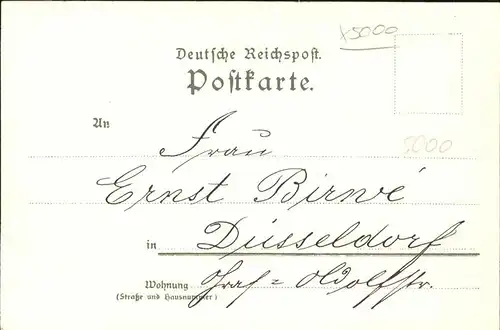 x5000
Deutsche Reichspost.
Postkarte.
5000
An Frau
Ernst Birwé
in Düsseldorf
Wohnung Graf=Adolfstr.
(Straße und Hausnummer)